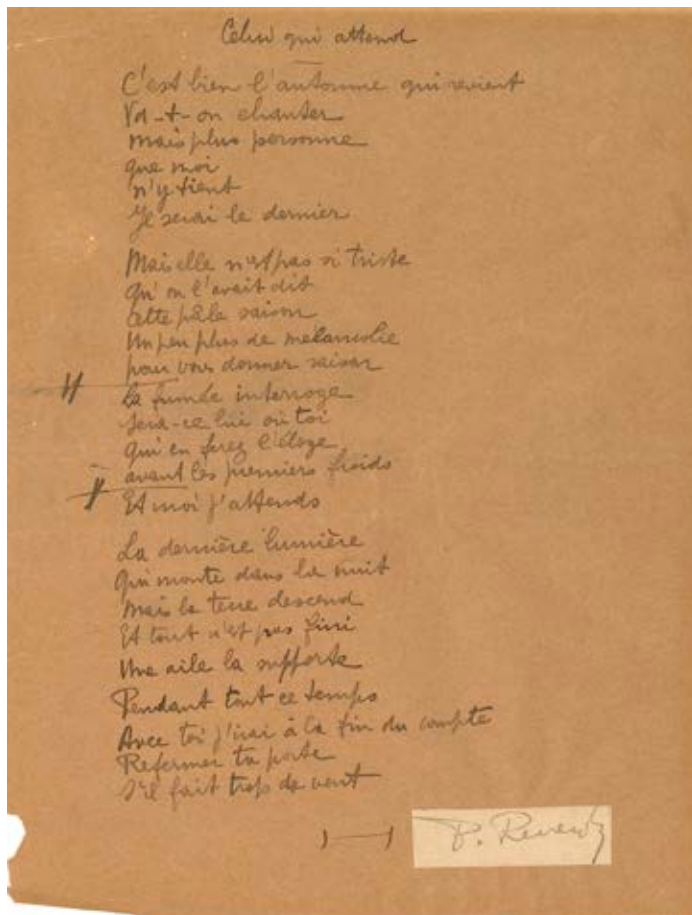 Celui qui attend
C'est bien l'automne qui revient
Va-t-on chanter
Mais plus personne
que moi
n'y tient
Je serai le dernier
Mais elle n'est pas si triste
Qu'on l'avait dit
Cette pâle saison
Un peu plus de mélancolie
pour vous donner raison
La fumée interroge
Sera-ce lui ou toi
Qui en ferez l'éloge
avant les premiers froids
Et moi j'attends
La dernière lumière
Qui monte dans la nuit
Mais la terre descend
Et tout n'est pas fini
Une aile la supporte
Pendant tout ce temps
Avec toi j'irai à la fin du compte
Refermer ta porte
S'il fait trop de vent
P. Reverdy